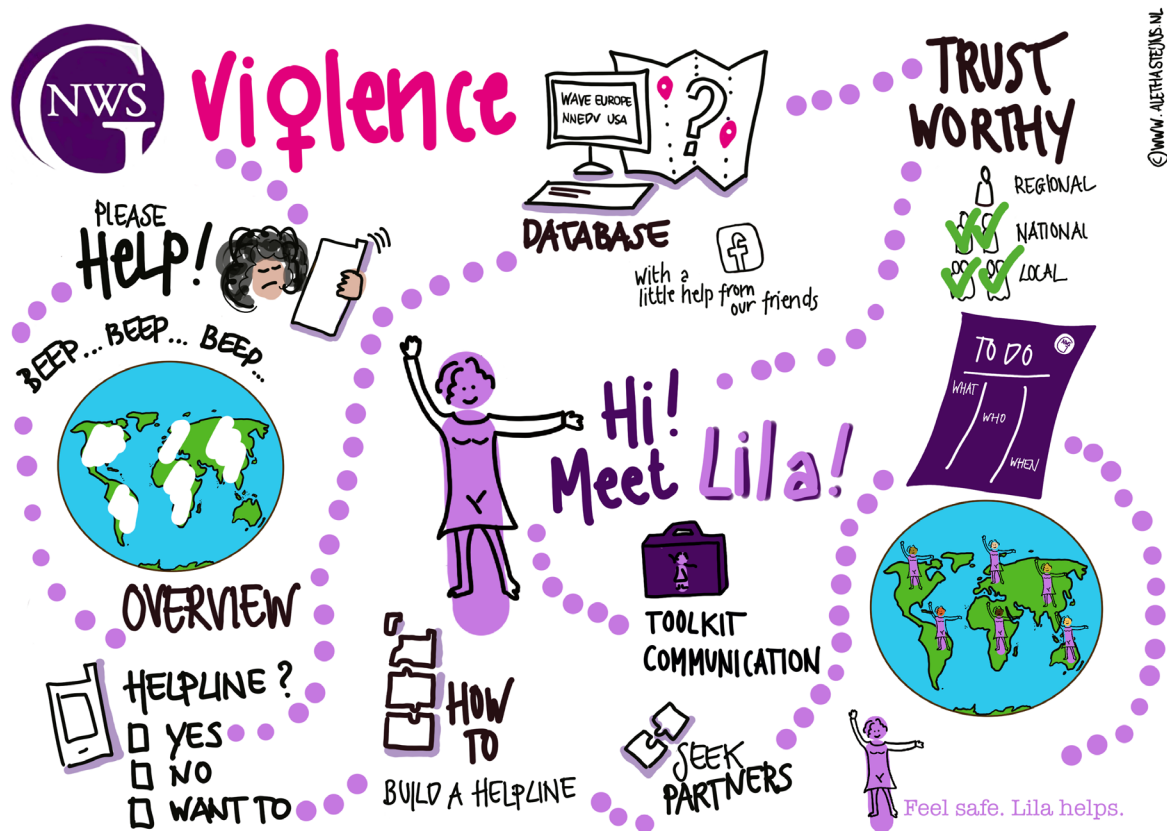 G
NWS
Violence
WAVE EUROPE
NNEDV USA
?
DATABASE
f
with a
little help from
our friends
TRUST
WORTHY
REGIONAL
NATIONAL
LOCAL
©WWW.ALETHASTEIJNS.NL
PLEASE
HELP!
BEEP... BEEP... BEEP...
OVERVIEW
HELPLINE?
YES
NO
WANT TO
Hi!
Meet Lila!
TOOLKIT
COMMUNICATION
HOW
TO
BUILD A HELPLINE
SEEK
PARTNERS
TO DO
WHAT
WHO
WHEN
Feel safe. Lila helps.